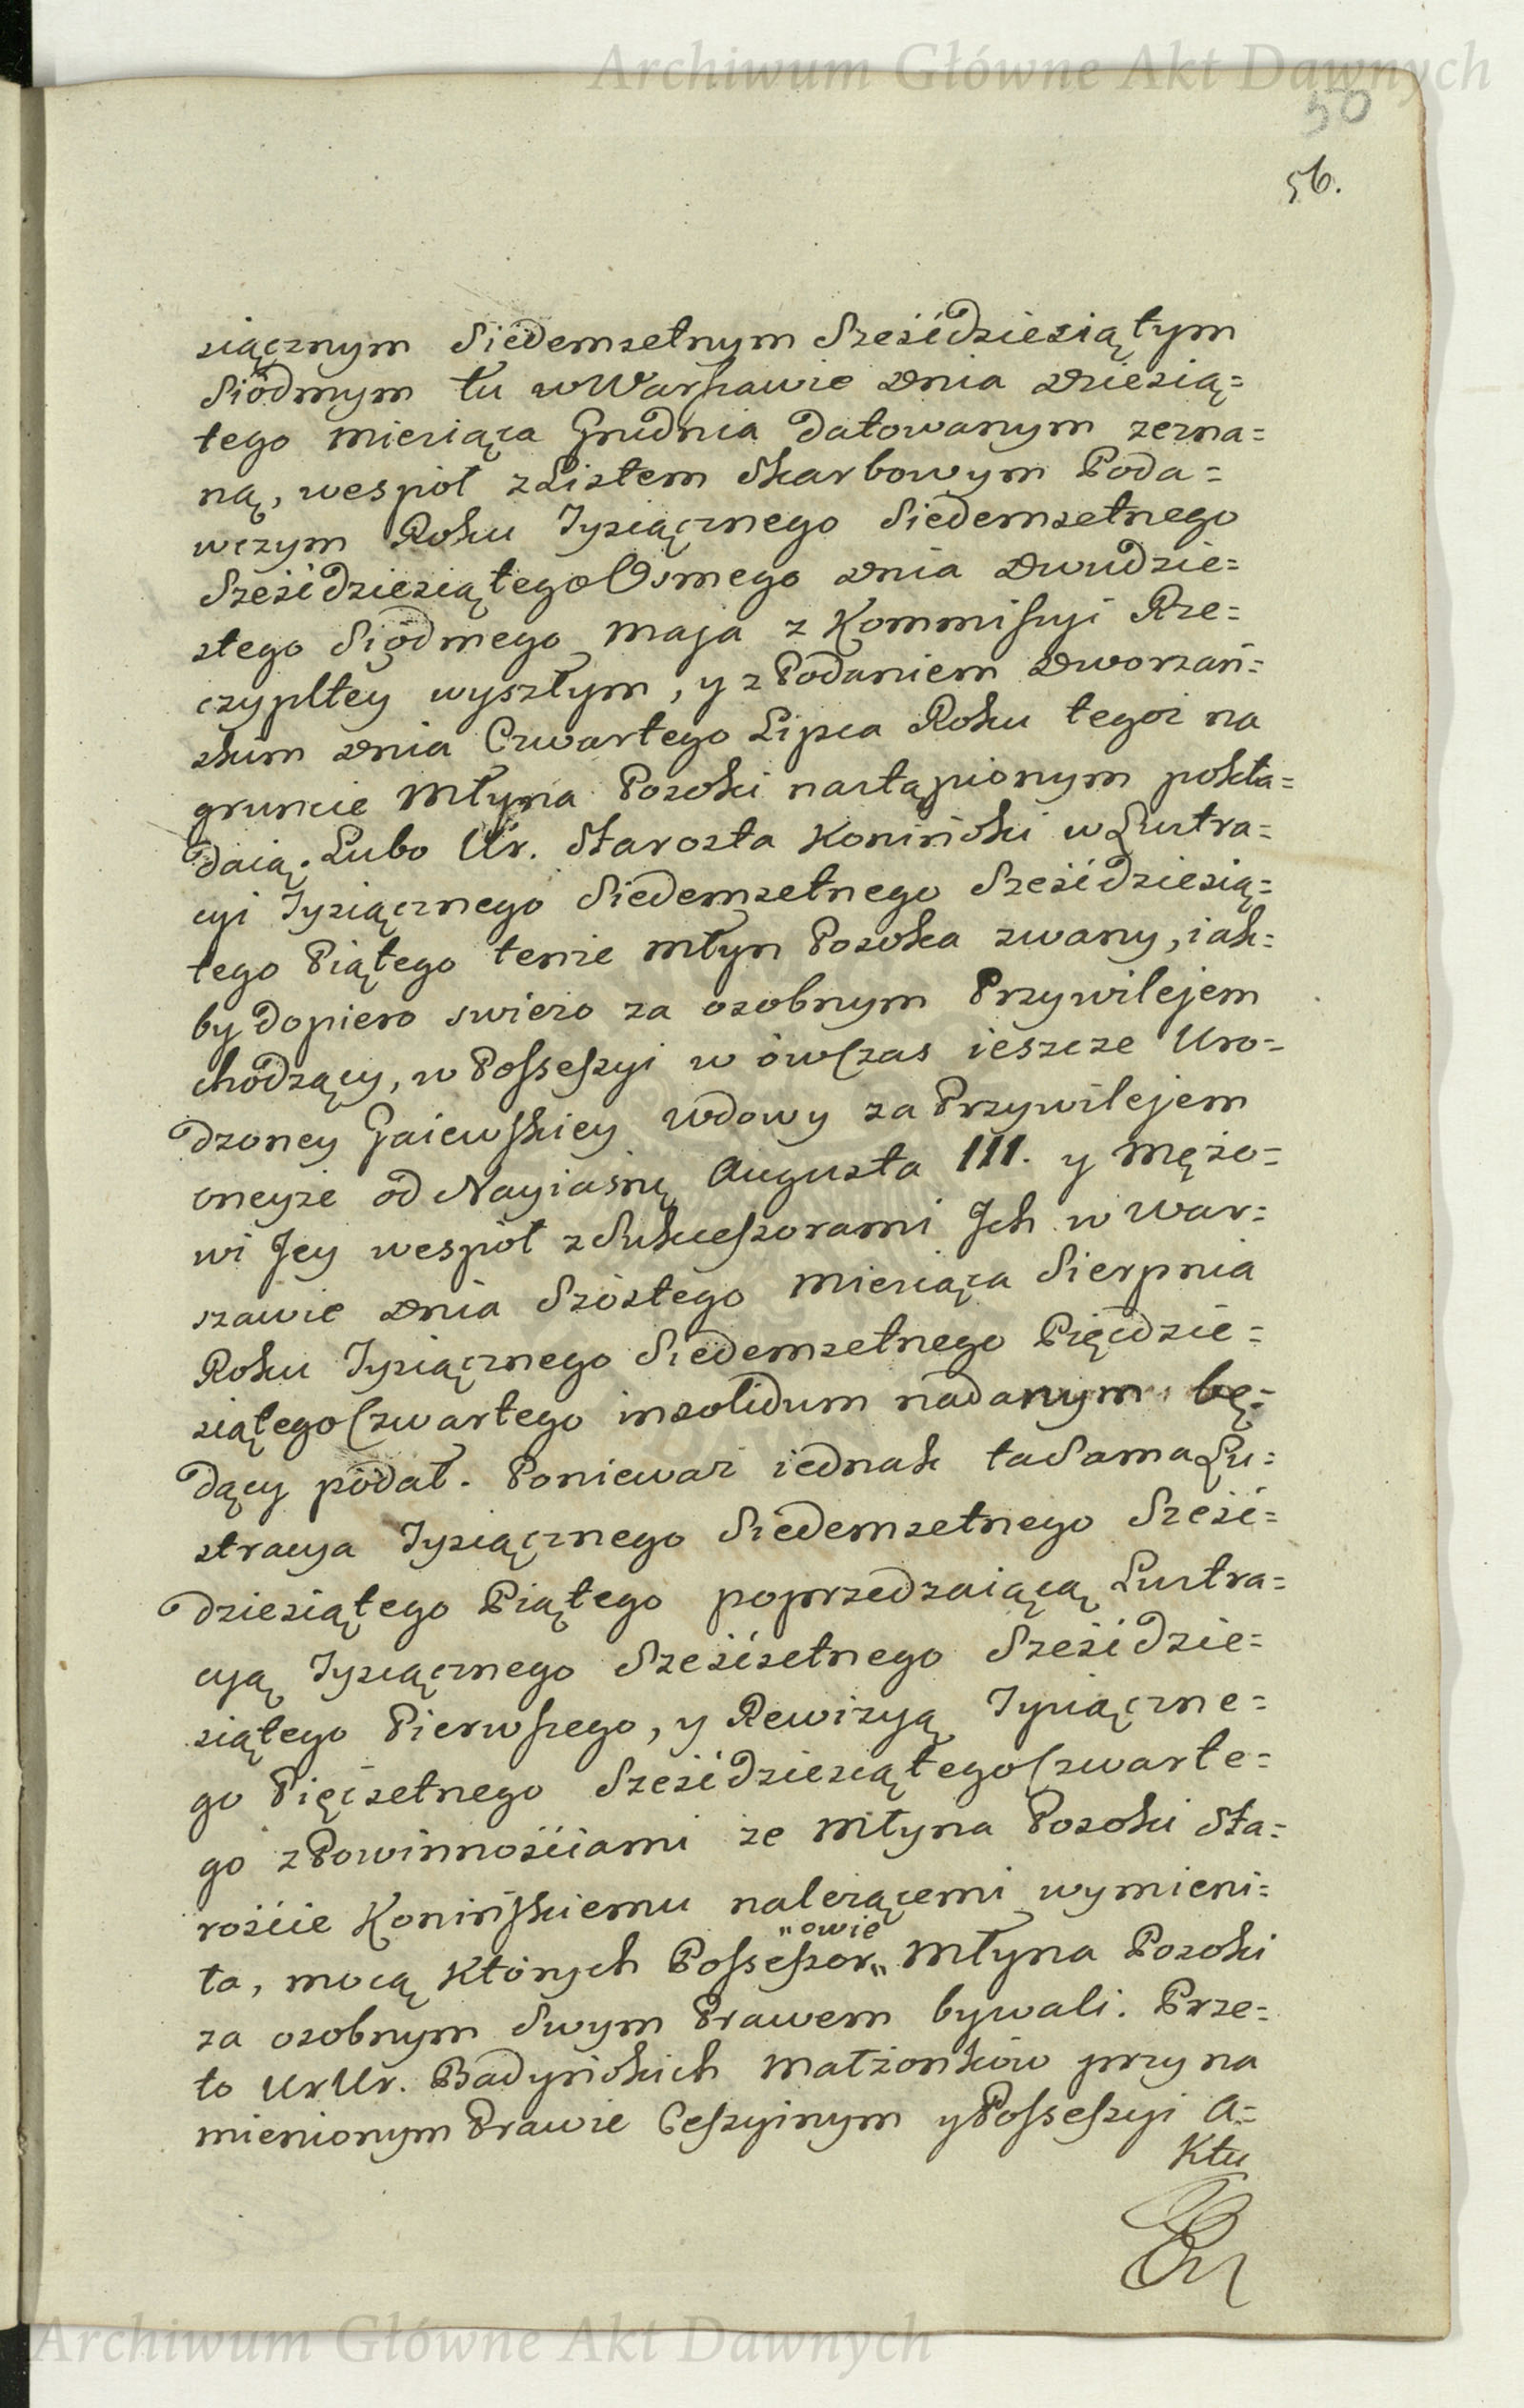 Archiwum Główne Akt Dawnych
50
56.
siącznym Siedemsetnym Sześćdziesiątym
Siodmym tu w Warszawie Dnia Dziesią=
tego Miesiąca Grudnia datowanym zezna=
ną, wespoł z Listem Skarbowym Poda=
wczym Roku Tysiącznego Siedemsetnego
Sześćdziesiątego Osmego Dnia Dwudzie=
stego Siodmego Maja z Kommissyi Rze=
czypltey wyszłym, y z Podaniem Dworzań=
skim Dnia Czwartego Lipca Roku tegoż na
gruncie Młyna Posoki nastąpionym pokła=
daią. Lubo Ur. Starosta Koniński w Lustra=
cyi Tysiącznego Siedemsetnego Sześćdziesią=
tego Piątego tenże Młyn Posoka zwany, iak=
by dopiero swieżo za osobnym Przywilejem
chodzący, w Possessyi w ówczas ieszcze Uro=
dzoney Gaiewskiey Wdowy za Przywilejem
oneyże od Nayiaśnę Augusta III. y Mężo=
wi Jey wespoł z Sukcessorami Jch w War=
szawie Dnia Szóstego Miesiąca Sierpnia
Roku Tysiącznego Siedemsetnego Pięćdzie=
siątego Czwartego insolidum nadanym bę=
dący podał. Ponieważ iednak ta Sama Lu=
stracya Tysiącznego Siedemsetnego Sześć=
dziesiątego Piątego poprzedzaiącą Lustra=
cyą Tysiącznego Sześćsetnego Sześćdzie=
siątego Pierwszego, y Rewizyą Tysiączne=
go Pięćsetnego Sześćdziesiątego Czwarte=
go z Powinnościami ze Młyna Posoki Sta=
roście Konińskiemu należącemi wymieni=
"owie
ta, mocą Których Possessor" Młyna Posoki
za osobnym Swym Prawem bywali. Prze=
to UrUr. Badyńskich Małżonków przy na
mienionym Prawie Cessyinym y Possessyi A=
Ktu
Archiwum Główne Akt Dawnych